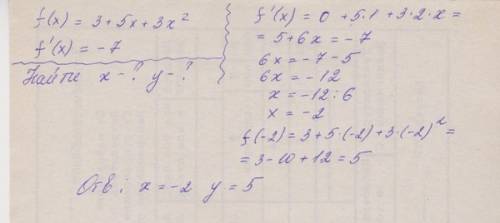 f(x) = 3 + 5x + 3x²
f'(x) = -7
Найти x - ? y - ?
f'(x) = 0 + 5·1 + 3·2·x =
= 5 + 6x = -7
6x = -7 - 5
6x = -12
x = -12 : 6
x = -2
f(-2) = 3 + 5·(-2) + 3·(-2)² =
= 3 - 10 + 12 = 5
Отв: x = -2 y = 5